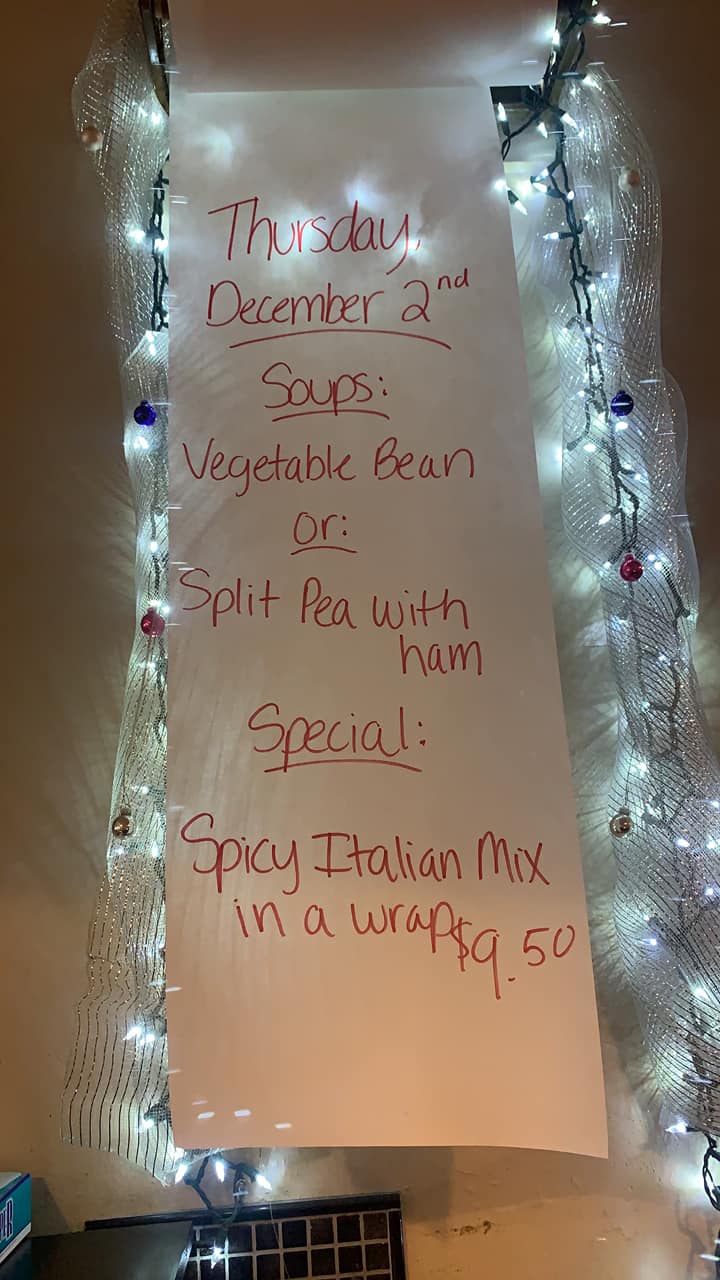 Thursday,
December 2nd
Soups:
Vegetable Bean
or:
Split Pea with
ham
Special:
Spicy Italian Mix
in a wrap $9.50